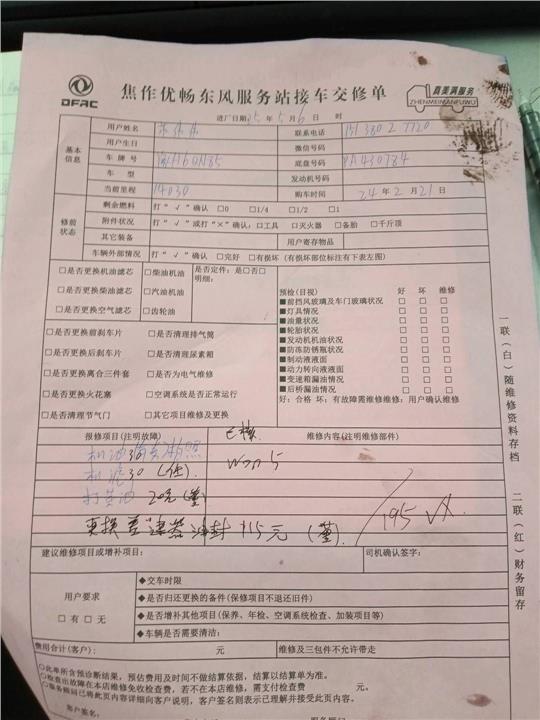 DFAC
焦作优畅东风服务站接车交修单
真美满服务
ZHENMEIMANFUWU
进厂日期 25 年 5 月 6 日 时
基本信息
用户姓名
联系电话 151 380 2 7720
用户生日
微信号码
车牌号
底盘号码 PA430784
车型
发动机号码
当前里程 14030
购车时间 24 年 2 月 21 日
修前状态
剩余燃料 打“√”确认 □0 □1/4 □1/2 □1
附件状况 打“√”或打“×”确认:□工具 □灭火器 □备胎 □千斤顶
其它装备 用户寄存物品
车辆外部情况 打“√”确认 □完好 □有损坏(有损坏部位标注有下表左图)
□是否更换机油滤芯 □柴油机油
□是否更换柴油滤芯 □汽油机油
□是否更换空气滤芯 □齿轮油
是否定件:是□否□
明细:
□是否更换前刹车片 □是否清理排气筒
□是否更换后刹车片 □是否清理尿素箱
□是否更换离合三件套 □是否为电气维修
□是否更换火花塞 □空调系统是否正常运行
□是否清理节气门 □其它项目维修及更换
预检(目视) 好 坏 维修
■前挡风玻璃及车门玻璃状况 □ □ □
■灯具情况 □ □ □
■油量状况 □ □ □
■轮胎状况 □ □ □
■发动机机油状况 □ □ □
■防冻防锈瓶状况 □ □ □
■制动液液面 □ □ □
■动力转向液液面 □ □ □
■变速箱漏油情况 □ □ □
■后桥漏油情况 □ □ □
好:合格 坏:有故障需维修维修:用户确认维修
报修项目(注明故障) 维修内容(注明维修部件)
机油
机滤 30
打黄油 20元
更换差速器油封 115元
195
建议维修项目或增补项目: 司机确认签字:
用户要求
□有 □无
◆交车时限
◆是否归还更换的备件(保修项目不退还旧件)
◆是否增补其他项目(保养、年检、空调系统检查、加装项目等)
◆车辆是否需要清洁:
费用合计(客户): 元 维修及三包件不允许带走
○此单所含预诊断结果,预估费用及时间不做结算依据,结算以结算单为准。
○检查出故障在本店维修免收检查费,若不在本店维修,需支付检查费 元。
○服务顾问已将此页内容详细向客户说明,客户签名则表示已理解并接受此页内容。
客户签名:
一联(白)随维修资料存档
二联(红)财务留存